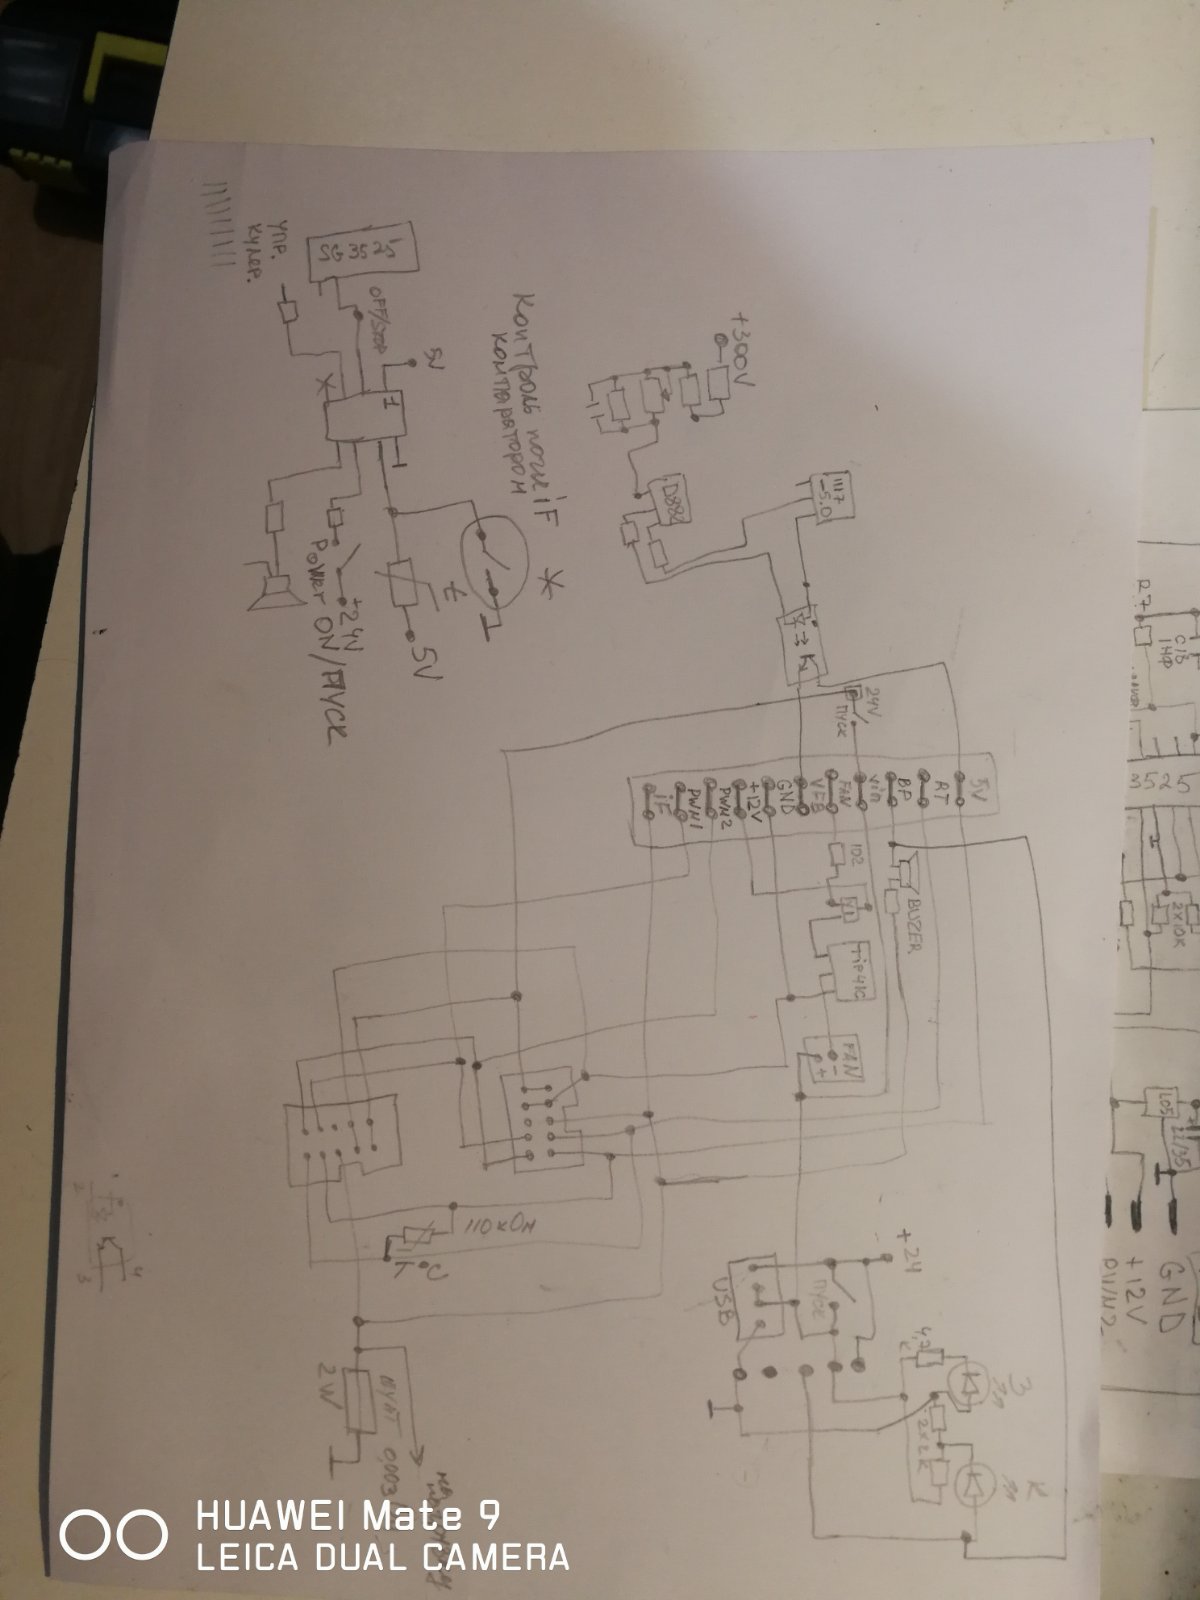 C18
1НФ
R7
3525
2x10K
L05
22/35
GND
+12V
PWM2
5V
RT
BP
Vin
FAN
VFB
GND
+12V
PWM2
PWM1
iF
BUZER
24V
ПУСК
102
TiP41C
FAN
-
+
1117
-5.0
+300V
D882
З
К
4,7
К
2x2K
+24
ПУСК
USB
Контроль
iF
компаратором
*
t
5V
5V
SG3525
OFF/STOP
1
Power
+24V
ON/ПУСК
УПР.
кулер.
110 кОм
T°C
на
ШУНТ
0,003
2W
4
2
3
HUAWEI Mate 9
LEICA DUAL CAMERA